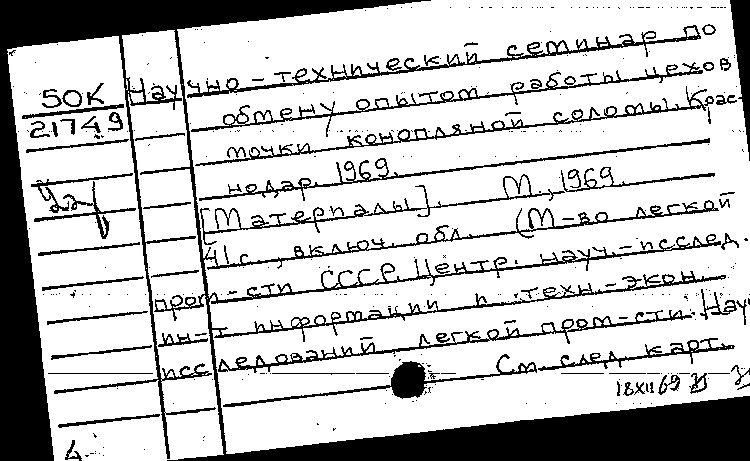 50К
21749
Научно-технический семинар по
обмену опытом работы цехов
мочки конопляной соломы. Крас-
нодар. 1969.
[Материалы]. М., 1969.
41 с., включ. обл. (М-во легкой
пром-сти СССР. Центр. науч.-исслед.
ин-т информации и техн.-экон.
исследований легкой пром-сти. Науч
См. след. карт.
18XII69